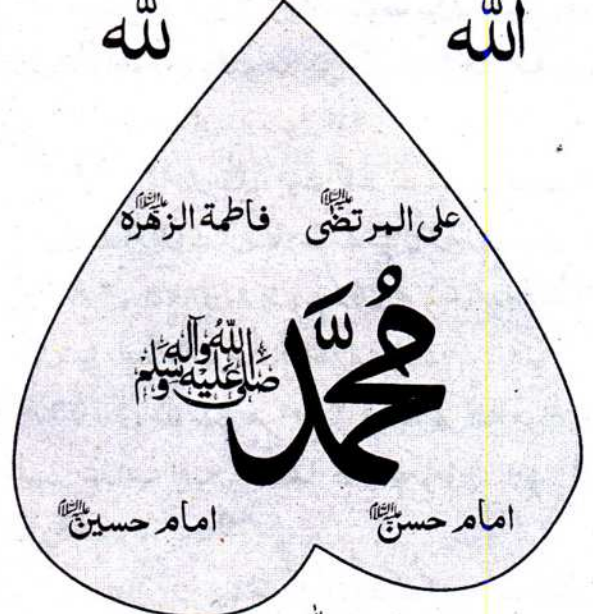 الله لله
علی المرتضیٰ علیہ السلام فاطمة الزهره علیہ السلام
مُحَمَّد صلى الله عليه وآله وسلم
امام حسن علیہ السلام امام حسین علیہ السلام